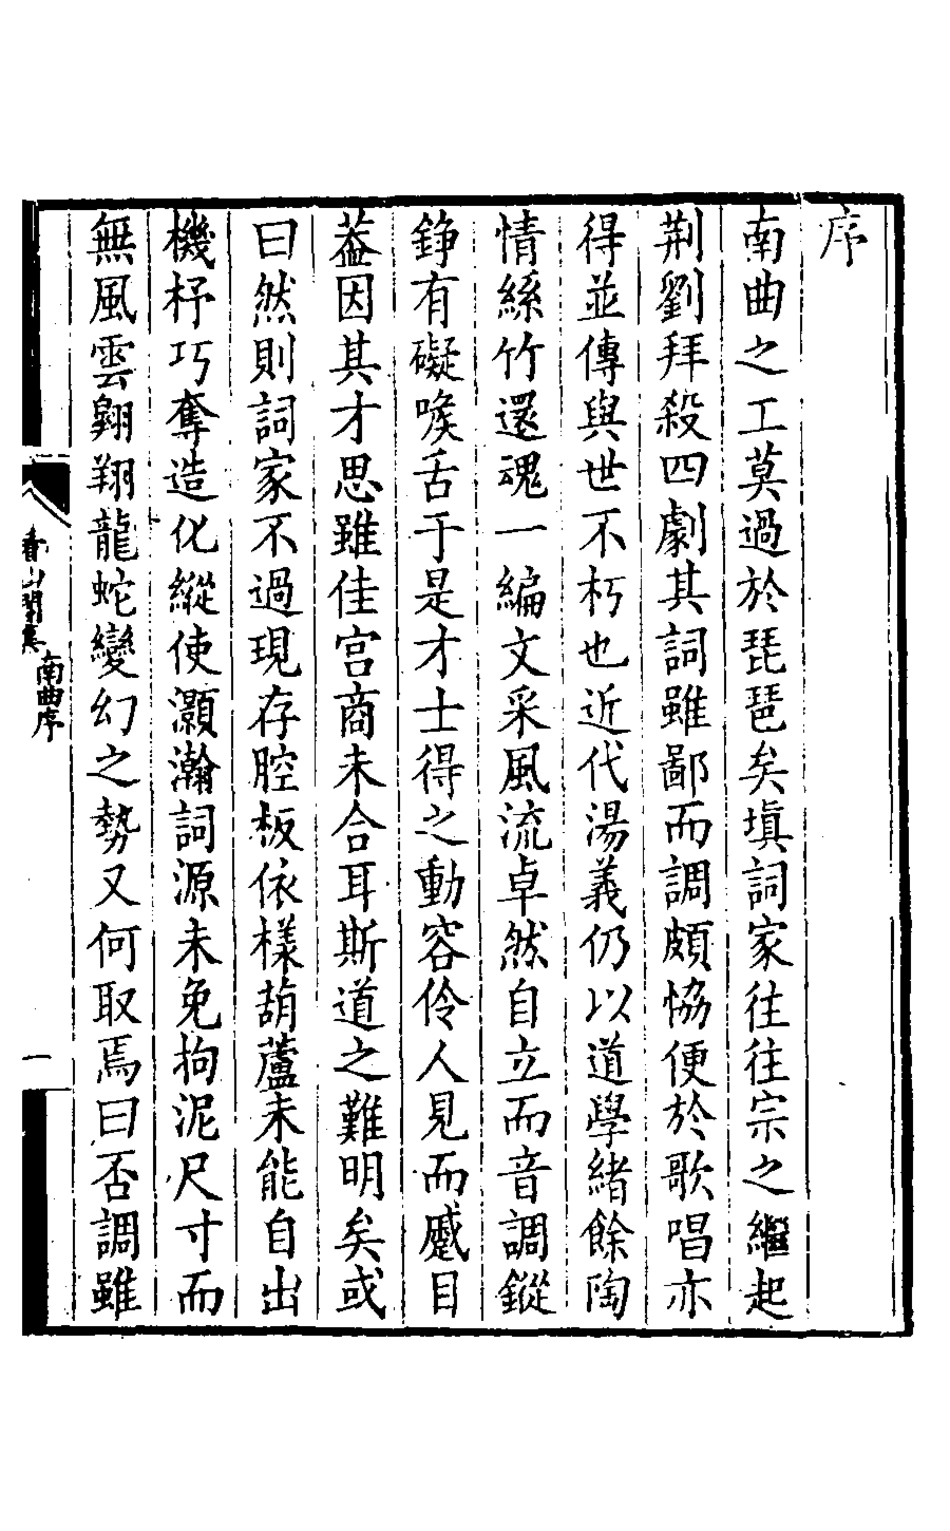 序
南曲之工莫過於琵琶矣塡詞家往往宗之繼起
荆劉拜殺四劇其詞雖鄙而調頗恊便於歌唱亦
得並傳與世不朽也近代湯義仍以道學緒餘陶
情絲竹還魂一編文采風流卓然自立而音調鏦
錚有礙喉舌于是才士得之動容伶人見而蹙目
葢因其才思雖佳宫商未合耳斯道之難明矣或
曰然則詞家不過現存腔板依樣葫蘆未能自出
機杼巧奪造化縱使灝瀚詞源未免拘泥尺寸而
無風雲翺翔龍蛇變幻之勢又何取焉曰否調雖
南曲序
一